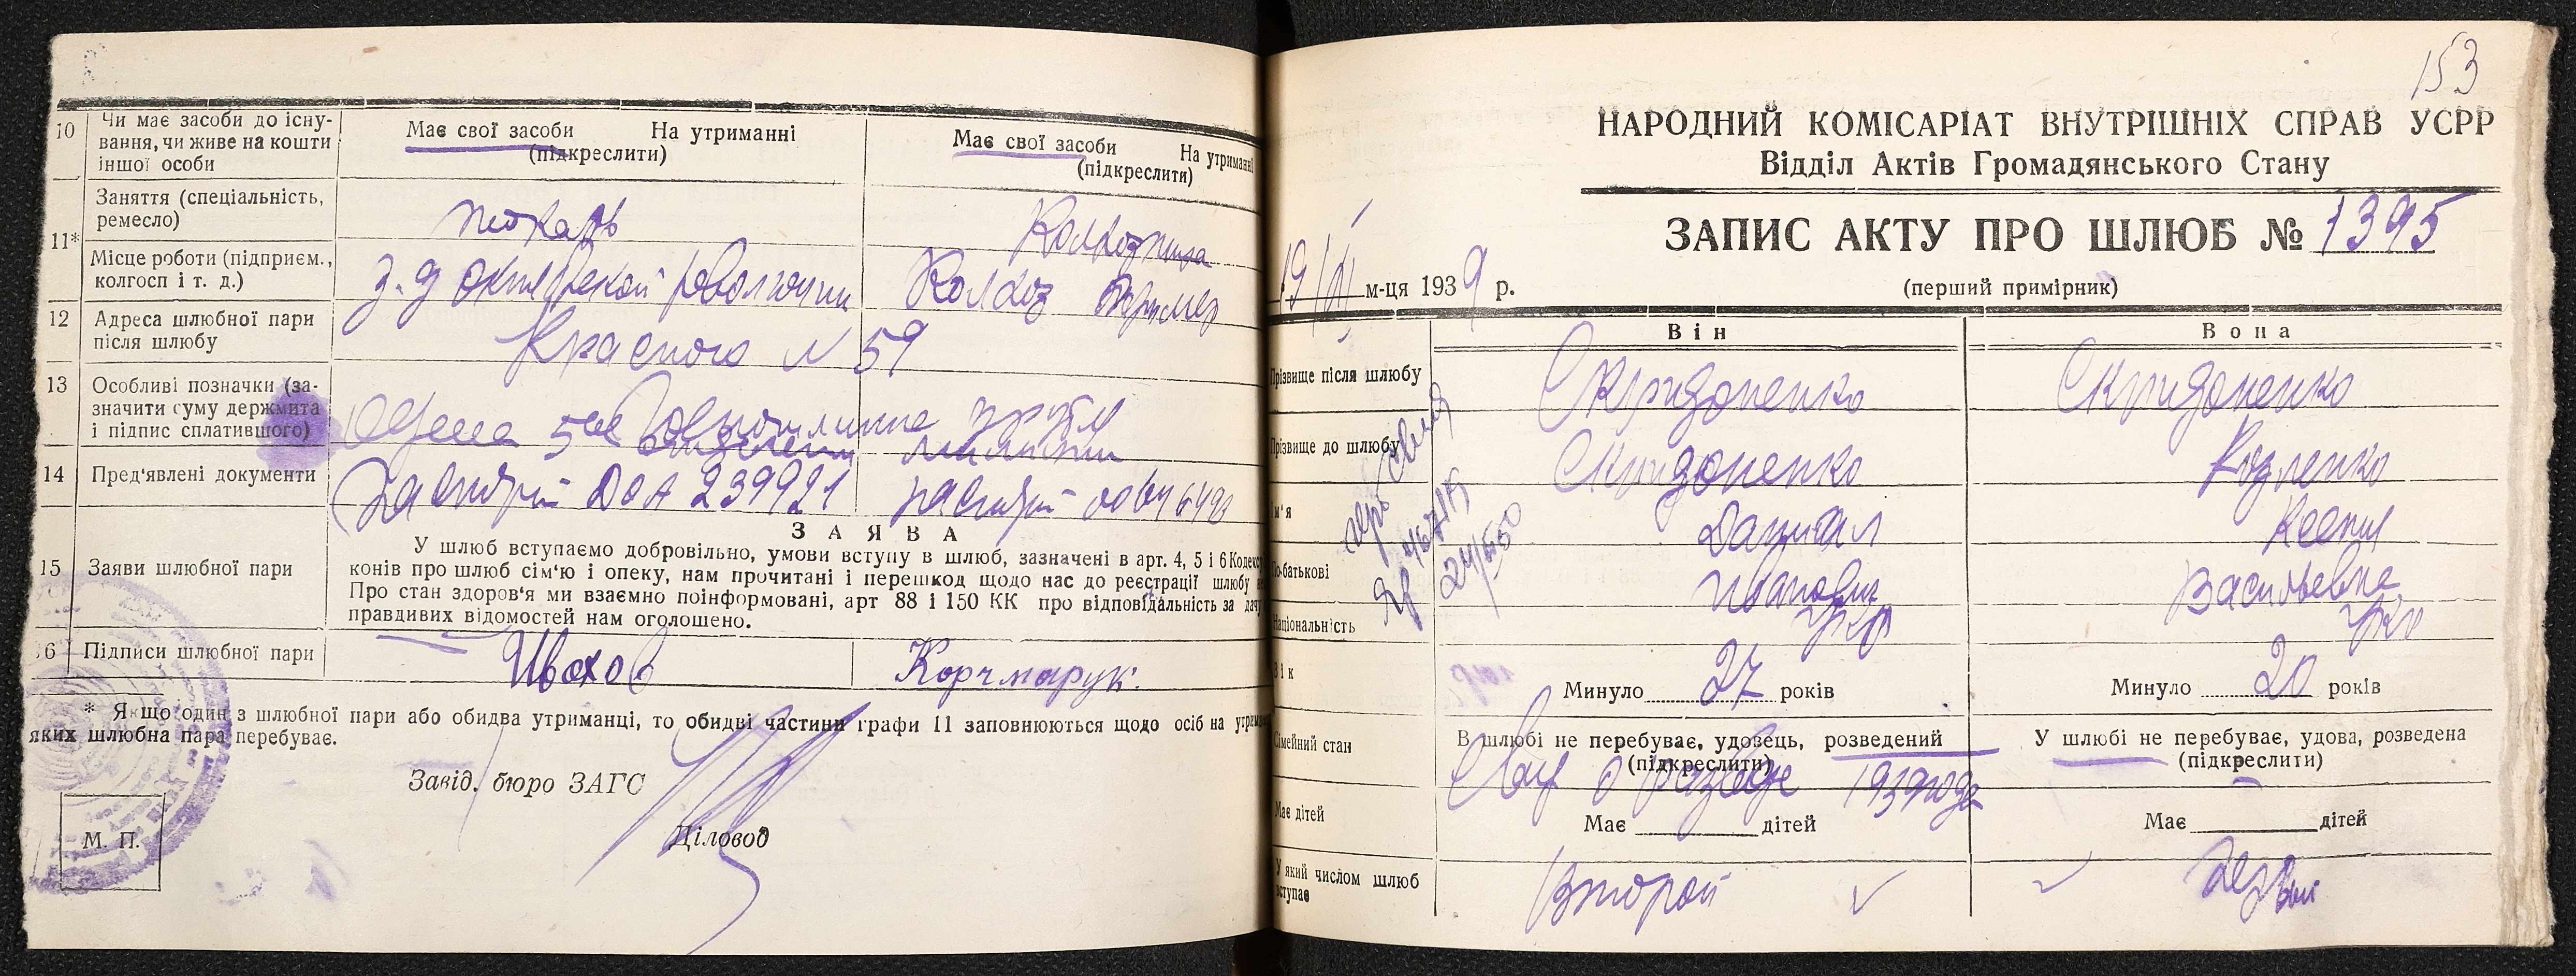 10
Чи має засоби до існу-
вання, чи живе на кошти
іншої особи
Має свої засоби На утриманні
(підкреслити)
Має свої засоби На утриманні
(підкреслити)
11*
Заняття (спеціальність,
ремесло)
токарь
Колхозница
Місце роботи (підприєм.,
колгосп і т. д.)
з-д октябрьской революции
Колхоз
12
Адреса шлюбної пари
після шлюбу
Красного № 59
13
Особливі позначки (за-
значити суму держмита
і підпис сплатившого)
14
Пред'явлені документи
паспорт 239921
паспорт
15
Заяви шлюбної пари
ЗАЯВА
У шлюб вступаємо добровільно, умови вступу в шлюб, зазначені в арт. 4, 5 і 6 Кодексу
конів про шлюб сім'ю і опеку, нам прочитані і перешкод щодо нас до реєстрації шлюбу
Про стан здоров'я ми взаємно поінформовані, арт 88 і 150 КК про відповідальність за
правдивих відомостей нам оголошено.
16
Підписи шлюбної пари
Ивахов
Корчмарук
* Якщо один з шлюбної пари або обидва утриманці, то обидві частини графи 11 заповнюються щодо осіб на
яких шлюбна пара перебуває.
Завід. бюро ЗАГС
Діловод
М. П.
153
НАРОДНИЙ КОМІСАРІАТ ВНУТРІШНІХ СПРАВ УСРР
Відділ Актів Громадянського Стану
ЗАПИС АКТУ ПРО ШЛЮБ № 1395
(перший примірник)
м-ця 1939 р.
Він
Вона
Прізвище після шлюбу
Скридоненко
Скридоненко
Прізвище до шлюбу
Скридоненко
Козленко
Ім'я
Даниил
Ксения
По-батькові
Иванович
Васильевна
Національність
укр
укр
Вік
Минуло 27 років
Минуло 20 років
Сімейний стан
В шлюбі не перебуває, удовець, розведений
(підкреслити)
У шлюбі не перебуває, удова, розведена
(підкреслити)
о разводе 1939 года
Має дітей
Має дітей
Має дітей
У який числом шлюб
вступає
Второй
первый